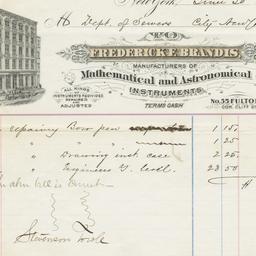 New York, June 20
M Dept. of Sewers City Hall N
TO
FREDERICK E. BRANDIS
MANUFACTURERS OF
Mathematical and Astronomical
INSTRUMENTS
ALL KINDS OF INSTRUMENTS PROVIDED REPAIRED AND ADJUSTED
TERMS CASH
No. 55 FULTON
COR. CLIFF ST
repairing Bow pen 1 15
" " " 1 25
" Drawing inst. case 2 25
" Engineers Y. level 23 50
above bill is correct
Stevenson Towle